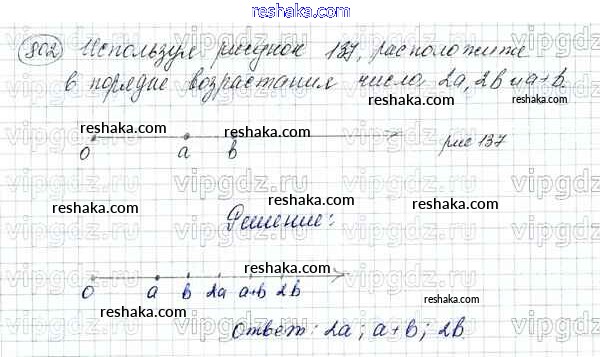 reshaka.com
802 Используя рисунок 137, расположите
в порядке возрастания числа 2a, 2b и a+b.
reshaka.com reshaka.com
0 a b рис 137
reshaka.com reshaka.com
reshaka.com reshaka.com
Решение:
reshaka.com
0 a b 2a a+b 2b
reshaka.com reshaka.com
reshaka.com
Ответ: 2a; a+b; 2b.
reshaka.com